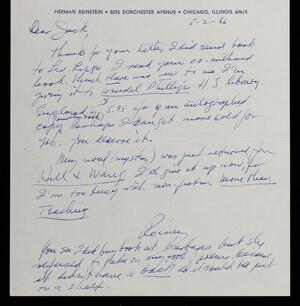 HERMAN REINSTEIN • 5035 DORCHESTER AVENUE • CHICAGO, ILLINOIS 60615
5-2-66
Dear Jack,
Thanks for your letter. I did send book
to Leo . I read your co-authored
book. Much there was new to me. I'm
giving it to Wendell Phillips H.S. library
Enclosed is 5.95 for an autographed
copy. Perhaps I can get more sold for
you. You deserve it.
My novel (mystery) was just returned from
Hill & Wang. I'll give it up now for
I'm too busy with non-fiction more than
Teaching.
Reiney
You said my book at but they
refused to take on my poems because
it didn't have a back so it could be put
on a shelf.